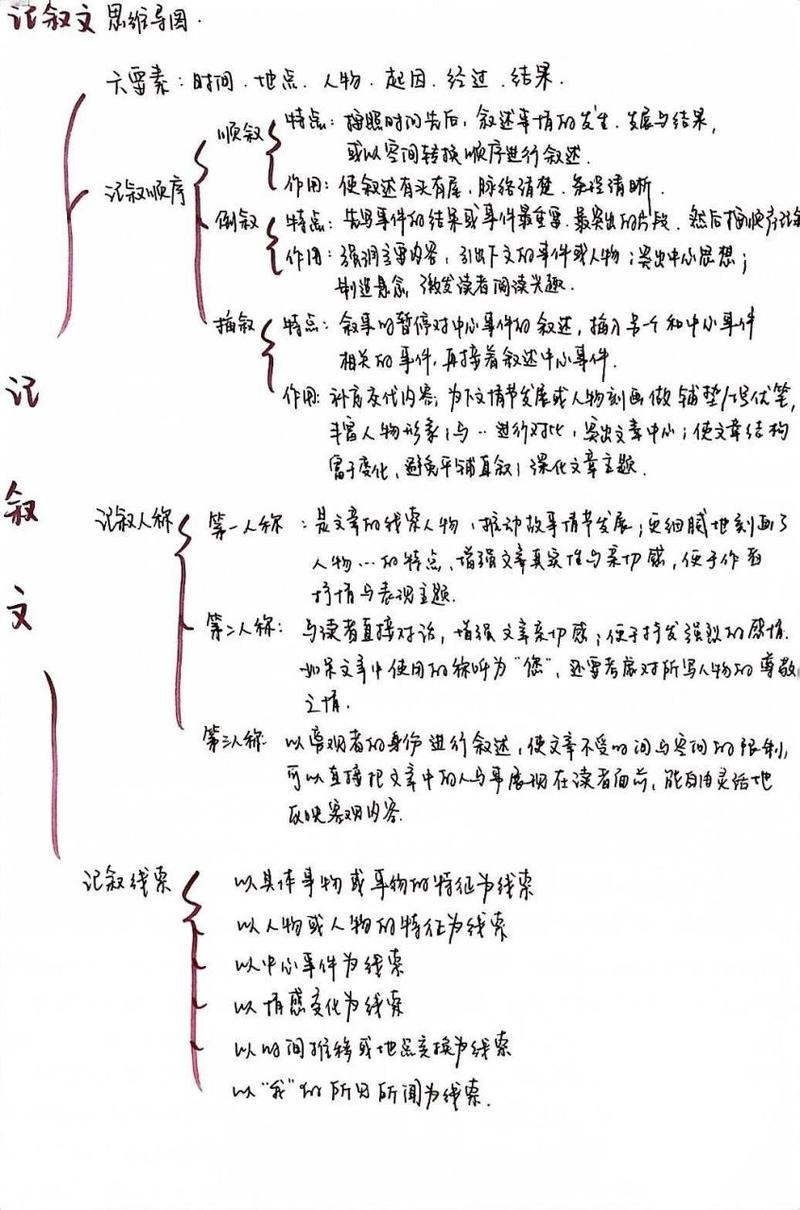 记叙文 思维导图.
六要素：时间．地点．人物．起因．经过．结果．
记叙顺序
顺叙
特点：按照时间先后，叙述事情的发生、发展与结果，
或以空间转换顺序进行叙述．
作用：使叙述有头有尾，脉络清楚，条理清晰．
倒叙
特点：先写事件的结果或事件最重要、最突出的片段，然后按顺序
作用：强调主要内容，引出下文的事件或人物；突出中心思想；
制造悬念，激发读者阅读兴趣．
插叙
特点：叙事时暂停对中心事件的叙述，插入另一个和中心事件
相关的事件，再接着叙述中心事件．
作用：补充交代内容；为下文情节发展或人物刻画做铺垫/埋伏笔，
丰富人物形象；与…进行对比，突出文章中心；使文章结构
富于变化，避免平铺直叙；深化文章主题．
记叙文
记叙人称
第一人称：是文章的线索人物，推动故事情节发展；更细腻地刻画了
人物…的特点，增强文章真实性与亲切感，便于作者
抒情与表现主题．
第二人称：与读者直接对话，增强文章亲切感；便于抒发强烈的感情．
如果文章中使用的称呼为“您”，还要考虑对所写人物的尊敬
之情．
第三人称 以旁观者的身份进行叙述，使文章不受时间与空间的限制，
可以直接把文章中的人与事展现在读者面前，能自由灵活地
反映客观内容．
记叙线索
以具体事物或事物的特征为线索
以人物或人物的特征为线索
以中心事件为线索
以情感变化为线索
以时间推移或地点变换为线索
以“我”的所见所闻为线索．